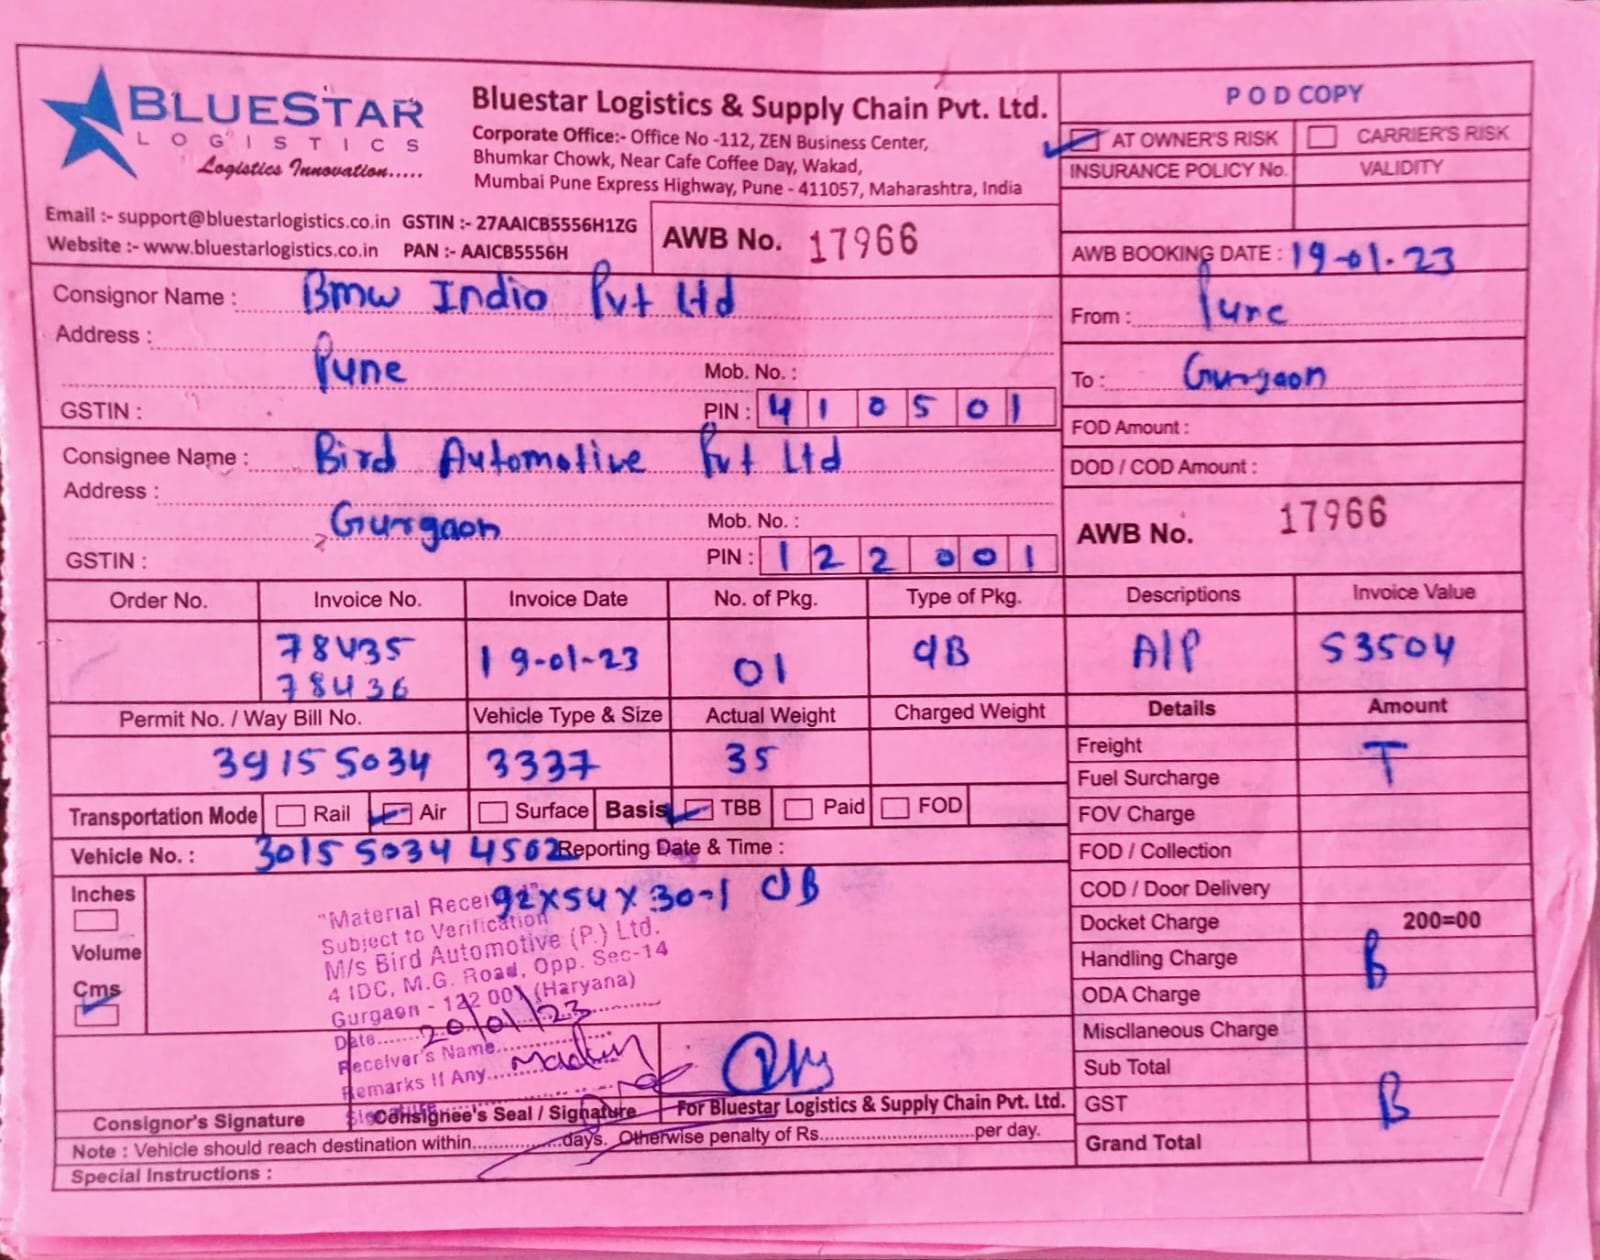 BLUESTAR
LOGISTICS
Logistics Innovation.....
Bluestar Logistics & Supply Chain Pvt. Ltd.
Corporate Office:- Office No -112, ZEN Business Center,
Bhumkar Chowk, Near Cafe Coffee Day, Wakad,
Mumbai Pune Express Highway, Pune - 411057, Maharashtra, India
Email :- support@bluestarlogistics.co.in GSTIN :- 27AAICB5556H1ZG
Website :- www.bluestarlogistics.co.in PAN :- AAICB5556H
AWB No. 17966
P O D COPY
AT OWNER'S RISK CARRIER'S RISK
INSURANCE POLICY No. VALIDITY
AWB BOOKING DATE : 19-01-23
Consignor Name : Bmw India Pvt Ltd
Address :
Pune
Mob. No. :
GSTIN : PIN : 410501
From : Pune
To : Gurgaon
FOD Amount :
Consignee Name : Bird Automotive Pvt Ltd
Address :
Gurgaon
Mob. No. :
GSTIN : PIN : 122001
DOD / COD Amount :
AWB No. 17966
Order No. Invoice No. Invoice Date No. of Pkg. Type of Pkg. Descriptions Invoice Value
78435 19-01-23 01 CB A/P 53504
78436
Permit No. / Way Bill No. Vehicle Type & Size Actual Weight Charged Weight Details Amount
3337 35
Freight T
Fuel Surcharge
Transportation Mode Rail Air Surface Basis TBB Paid FOD
FOV Charge
Vehicle No. : 3015 5034 4562 Reporting Date & Time :
FOD / Collection
Inches
92x54x30-1 CB
COD / Door Delivery
Docket Charge 200=00
Volume
Handling Charge B
Cms
ODA Charge
Miscllaneous Charge
Sub Total
GST B
Grand Total
"Material Recei
Subject to Verification
M/s Bird Automotive (P.) Ltd.
4 IDC, M.G. Road, Opp. Sec-14
Gurgaon - 122 001 (Haryana)
Date 20/01/23
Receiver's Name
Remarks If Any
Consignor's Signature Consignee's Seal / Signature For Bluestar Logistics & Supply Chain Pvt. Ltd.
Note : Vehicle should reach destination within................days. Otherwise penalty of Rs.........................per day.
Special Instructions :